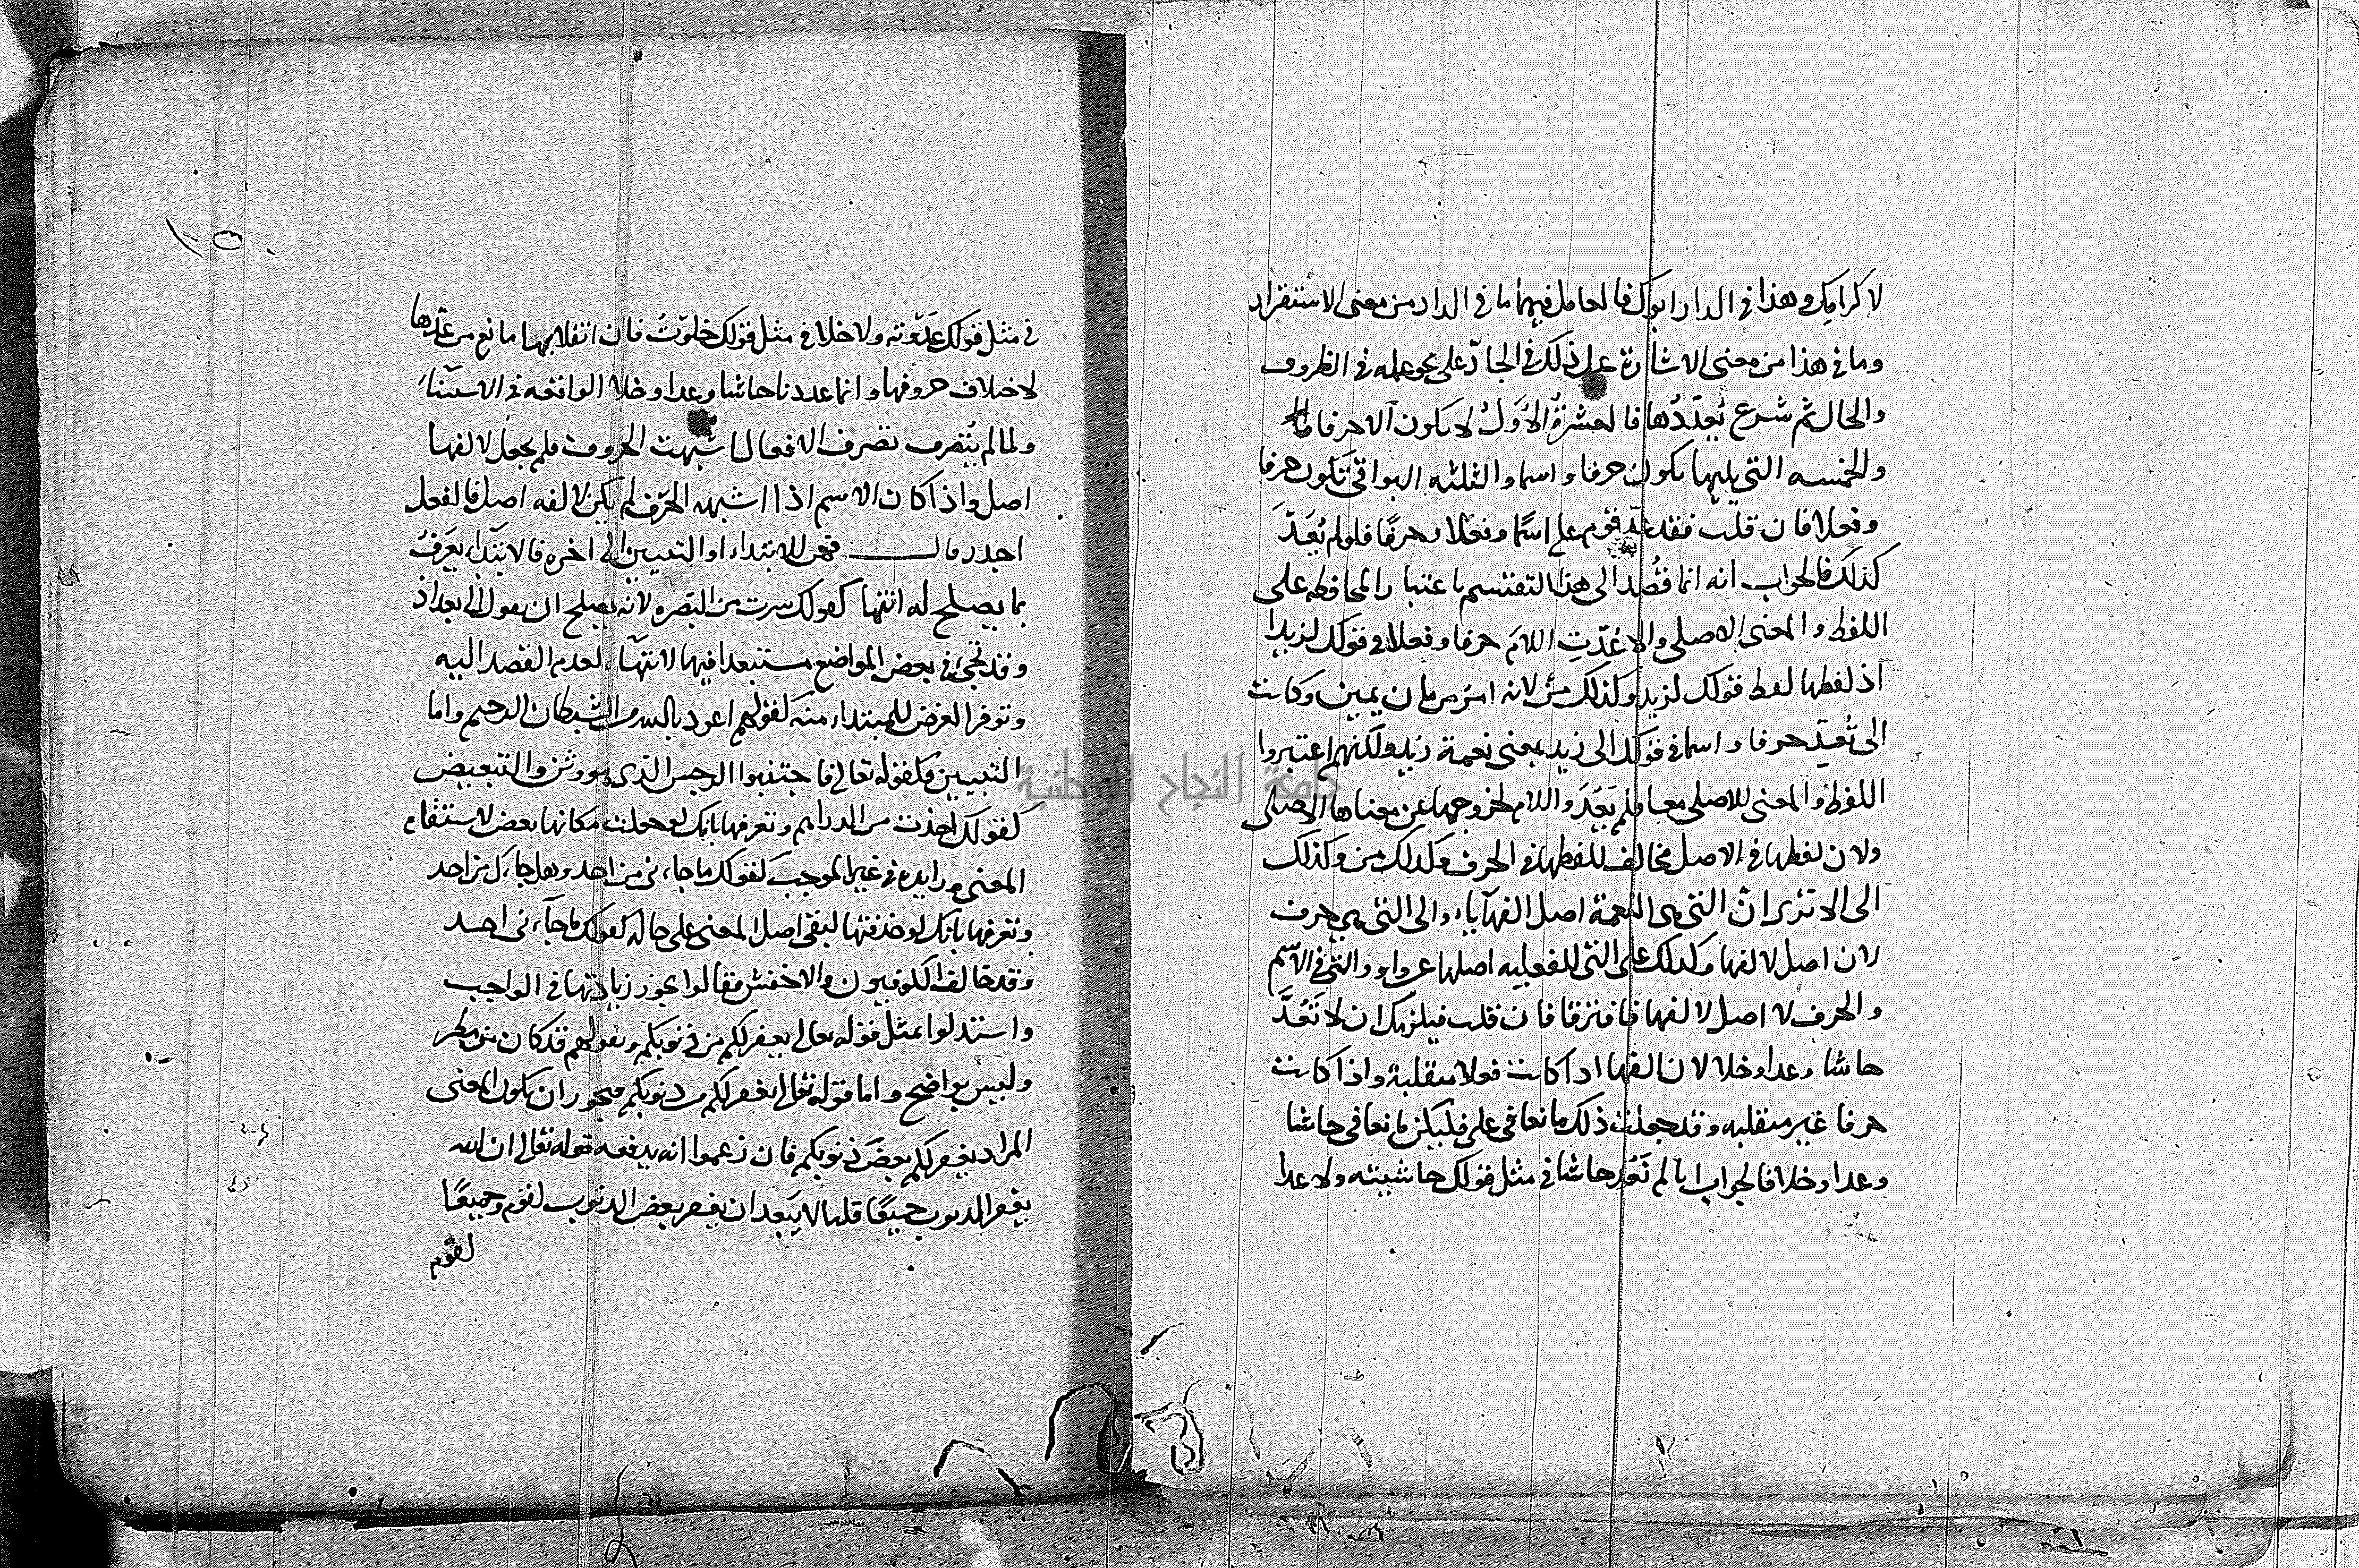 لاكرامك وهذا في الدار ابوك فالعامل فيهما ما في الدار من معنى الاستقرار
وما في هذا من معنى الاشارة عمل ذلك في الجار على نحو عمله في الظروف
والحال ثم شرع يُعدّدُها فالعشرةُ الاُوَلُ لا يكون الا حرفا
والخمسه التي يليها يكون حرفا واسما والثلثه البواقي تكون حرفا
وفعلا فان قلت فقد عدّ قوم على اسمًا وفعلا وحرفًا فلم لم يُعَدَّ
كذلك فالجواب انه انما قُصِد الى هذا التقسيم باعتبار المحافظه على
اللفظ والمعنى الاصلي والا عُدّتِ اللامَ حرفا وفعلا في قولك لزيدا
اذ لفظها لفظ قولك لزيد وكذلك من لانه امرٌ من مان يمين وكانت
الى تُعَدّ حرفا واسما في قولك الى زيد بمعنى نعمة زيد ولكنهم اعتبروا
اللفظ والمعنى للاصلي معا فلم يَعُدّوا اللام لخروجها عن معناها الاصلي
ولان لفظها في الاصل مخالف للفظها في الحرف وكذلك من وكذلك
الى الا ترى انّ التي هي النعمة اصل الفها ياء والى التي هي حرف
لان اصل لالفها وكذلك على التي للفعليه اصلها عن واو والتي في الاسم
والحرف لا اصل لالفها فافترقا فان قلت فيلزمك ان لا تَعُدَّ
حاشا وعدا وخلا لان الفها اذا كانت فعلا منقلبة واذا كانت
حرفا غير منقلبه وقد جعلت ذلك مانعا في على فليكن مانعا في حاشا
وعدا وخلا فالجواب انا لم نَعُدّ حاشا في مثل قولك حاشيته ولا عدا
١٥٠
في مثل قولك عَدَوته ولا خلا في مثل قولك خلوتُ فان انقلابها مانع من عدّها
لاختلاف حروفها وانما عددنا حاشا وعدا وخلا الواقعه في الاستثناء
ولما لم يتصرف تصرف الافعال اشبهت الحروف فلم يجعل لالفها
اصل واذا كان الاسم اذا اشبهه الحرف لم يكن لالفه اصل فالفعل
اجدر قال فمن للابتداء او التبيين الى اخره فالابتداء يعرفُ
بما يصلح له انتهاء كقولك سرت من البصره لانه يصلح ان يقول الى بغداذ
وقد تجيء في بعض المواضع مستبعدا فيها الانتهاء لعدم القصد اليه
وتوفر الغرض للمبتداء منه كقولهم اعوذ بالله من الشيطان الرجيم واما
التبيين فكقوله تعالى فاجتنبوا الرجس الذي هو وثن والتبعيض
كقولك اخذت من الدراهم وتعرفها بانك لو جعلت مكانها بعض لاستقام
المعنى وزايده في غير الموجب كقولك ما جاءني من احد وهل جاءك من احد
وتعرفها بانك لو حذفتها لبقي اصل المعنى على حاله كقولك ما جآءني احد
وقد خالف الكوفيون والاخفش فقالوا يجوز زيادتها في الواجب
واستدلوا بمثل قوله تعالى يغفر لكم من ذنوبكم وبقولهم قد كان من مطر
وليس بواضح واما قوله تعالى يغفر لكم من ذنوبكم فيجوز ان يكون المعنى
المراد يغفر لكم بعضَ ذنوبكم فان زعموا انه يدفعه قوله تعالى ان الله
يغفر الذنوب جميعًا قلنا لا يبَعد ان يغفر بعض الذنوب لقوم وجميعًا
لقوم
جامعة النجاح الوطنية